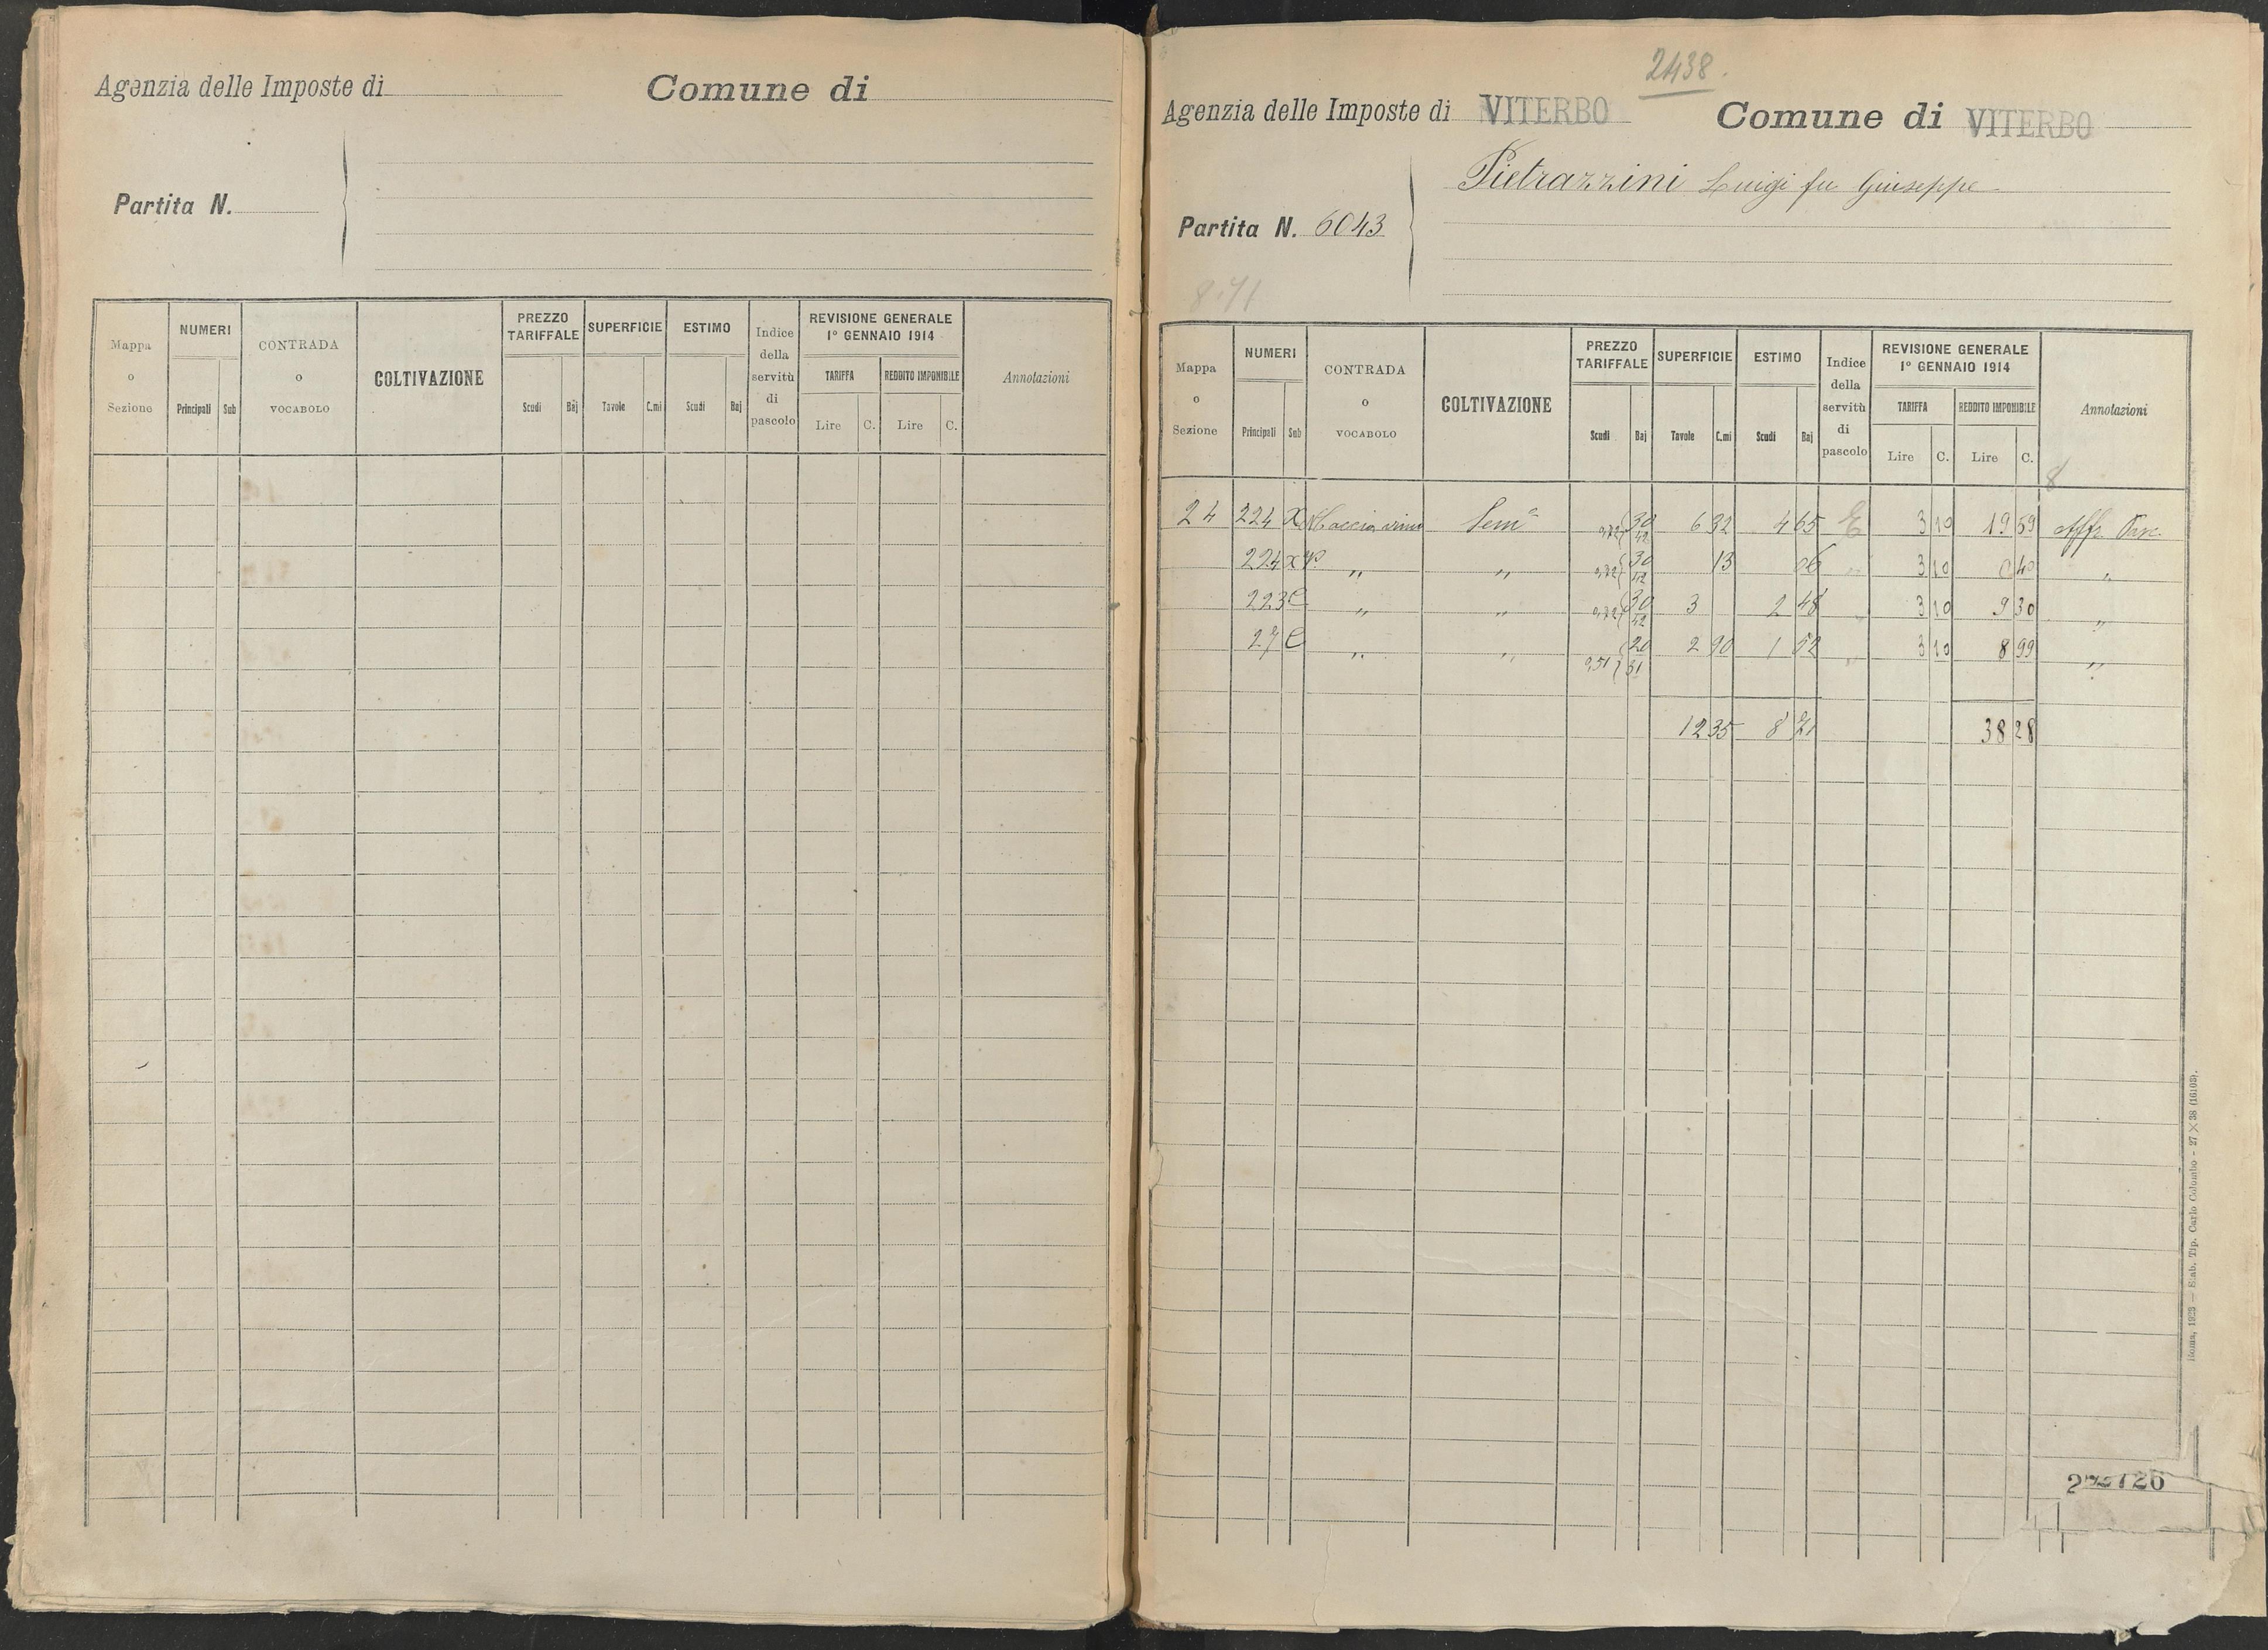 Agenzia delle Imposte di Comune di
Partita N.
Mappa o Sezione
NUMERI
Principali Sub
CONTRADA o VOCABOLO
COLTIVAZIONE
PREZZO TARIFFALE
Scudi Baj
SUPERFICIE
Tavole C.mi
ESTIMO
Scudi Baj
Indice della servitù di pascolo
REVISIONE GENERALE
1º GENNAIO 1914
TARIFFA REDDITO IMPONIBILE
Lire C. Lire C.
Annotazioni
2438.
Agenzia delle Imposte di VITERBO Comune di VITERBO
Pietrazzini Luigi fu Giuseppe
Partita N. 6043
8.71
Mappa o Sezione
NUMERI
Principali Sub
CONTRADA o VOCABOLO
COLTIVAZIONE
PREZZO TARIFFALE
Scudi Baj
SUPERFICIE
Tavole C.mi
ESTIMO
Scudi Baj
Indice della servitù di pascolo
REVISIONE GENERALE
1º GENNAIO 1914
TARIFFA REDDITO IMPONIBILE
Lire C. Lire C.
Annotazioni
8
24 224 x Semº 30 42 6 32 4 65 E 3 10 19 59 Affr.
224 x " " 30 42 13 06 " 3 10 0 40 "
223 e " " 30 42 3 2 48 " 3 10 9 30 "
27 e " " 20 31 2 90 1 52 " 3 10 8 99 "
12 35 8 71 38 28
Roma, 1923 — Stab. Tip. Carlo Colombo - 27 × 38 (16103).